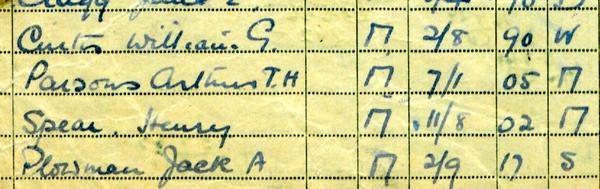 Curtis William. G. M 2/8 90 W
Parsons Arthur T.H M 7/1 05 M
Spear, Henry M 11/8 02 M
Plowman Jack A M 2/9 17 S